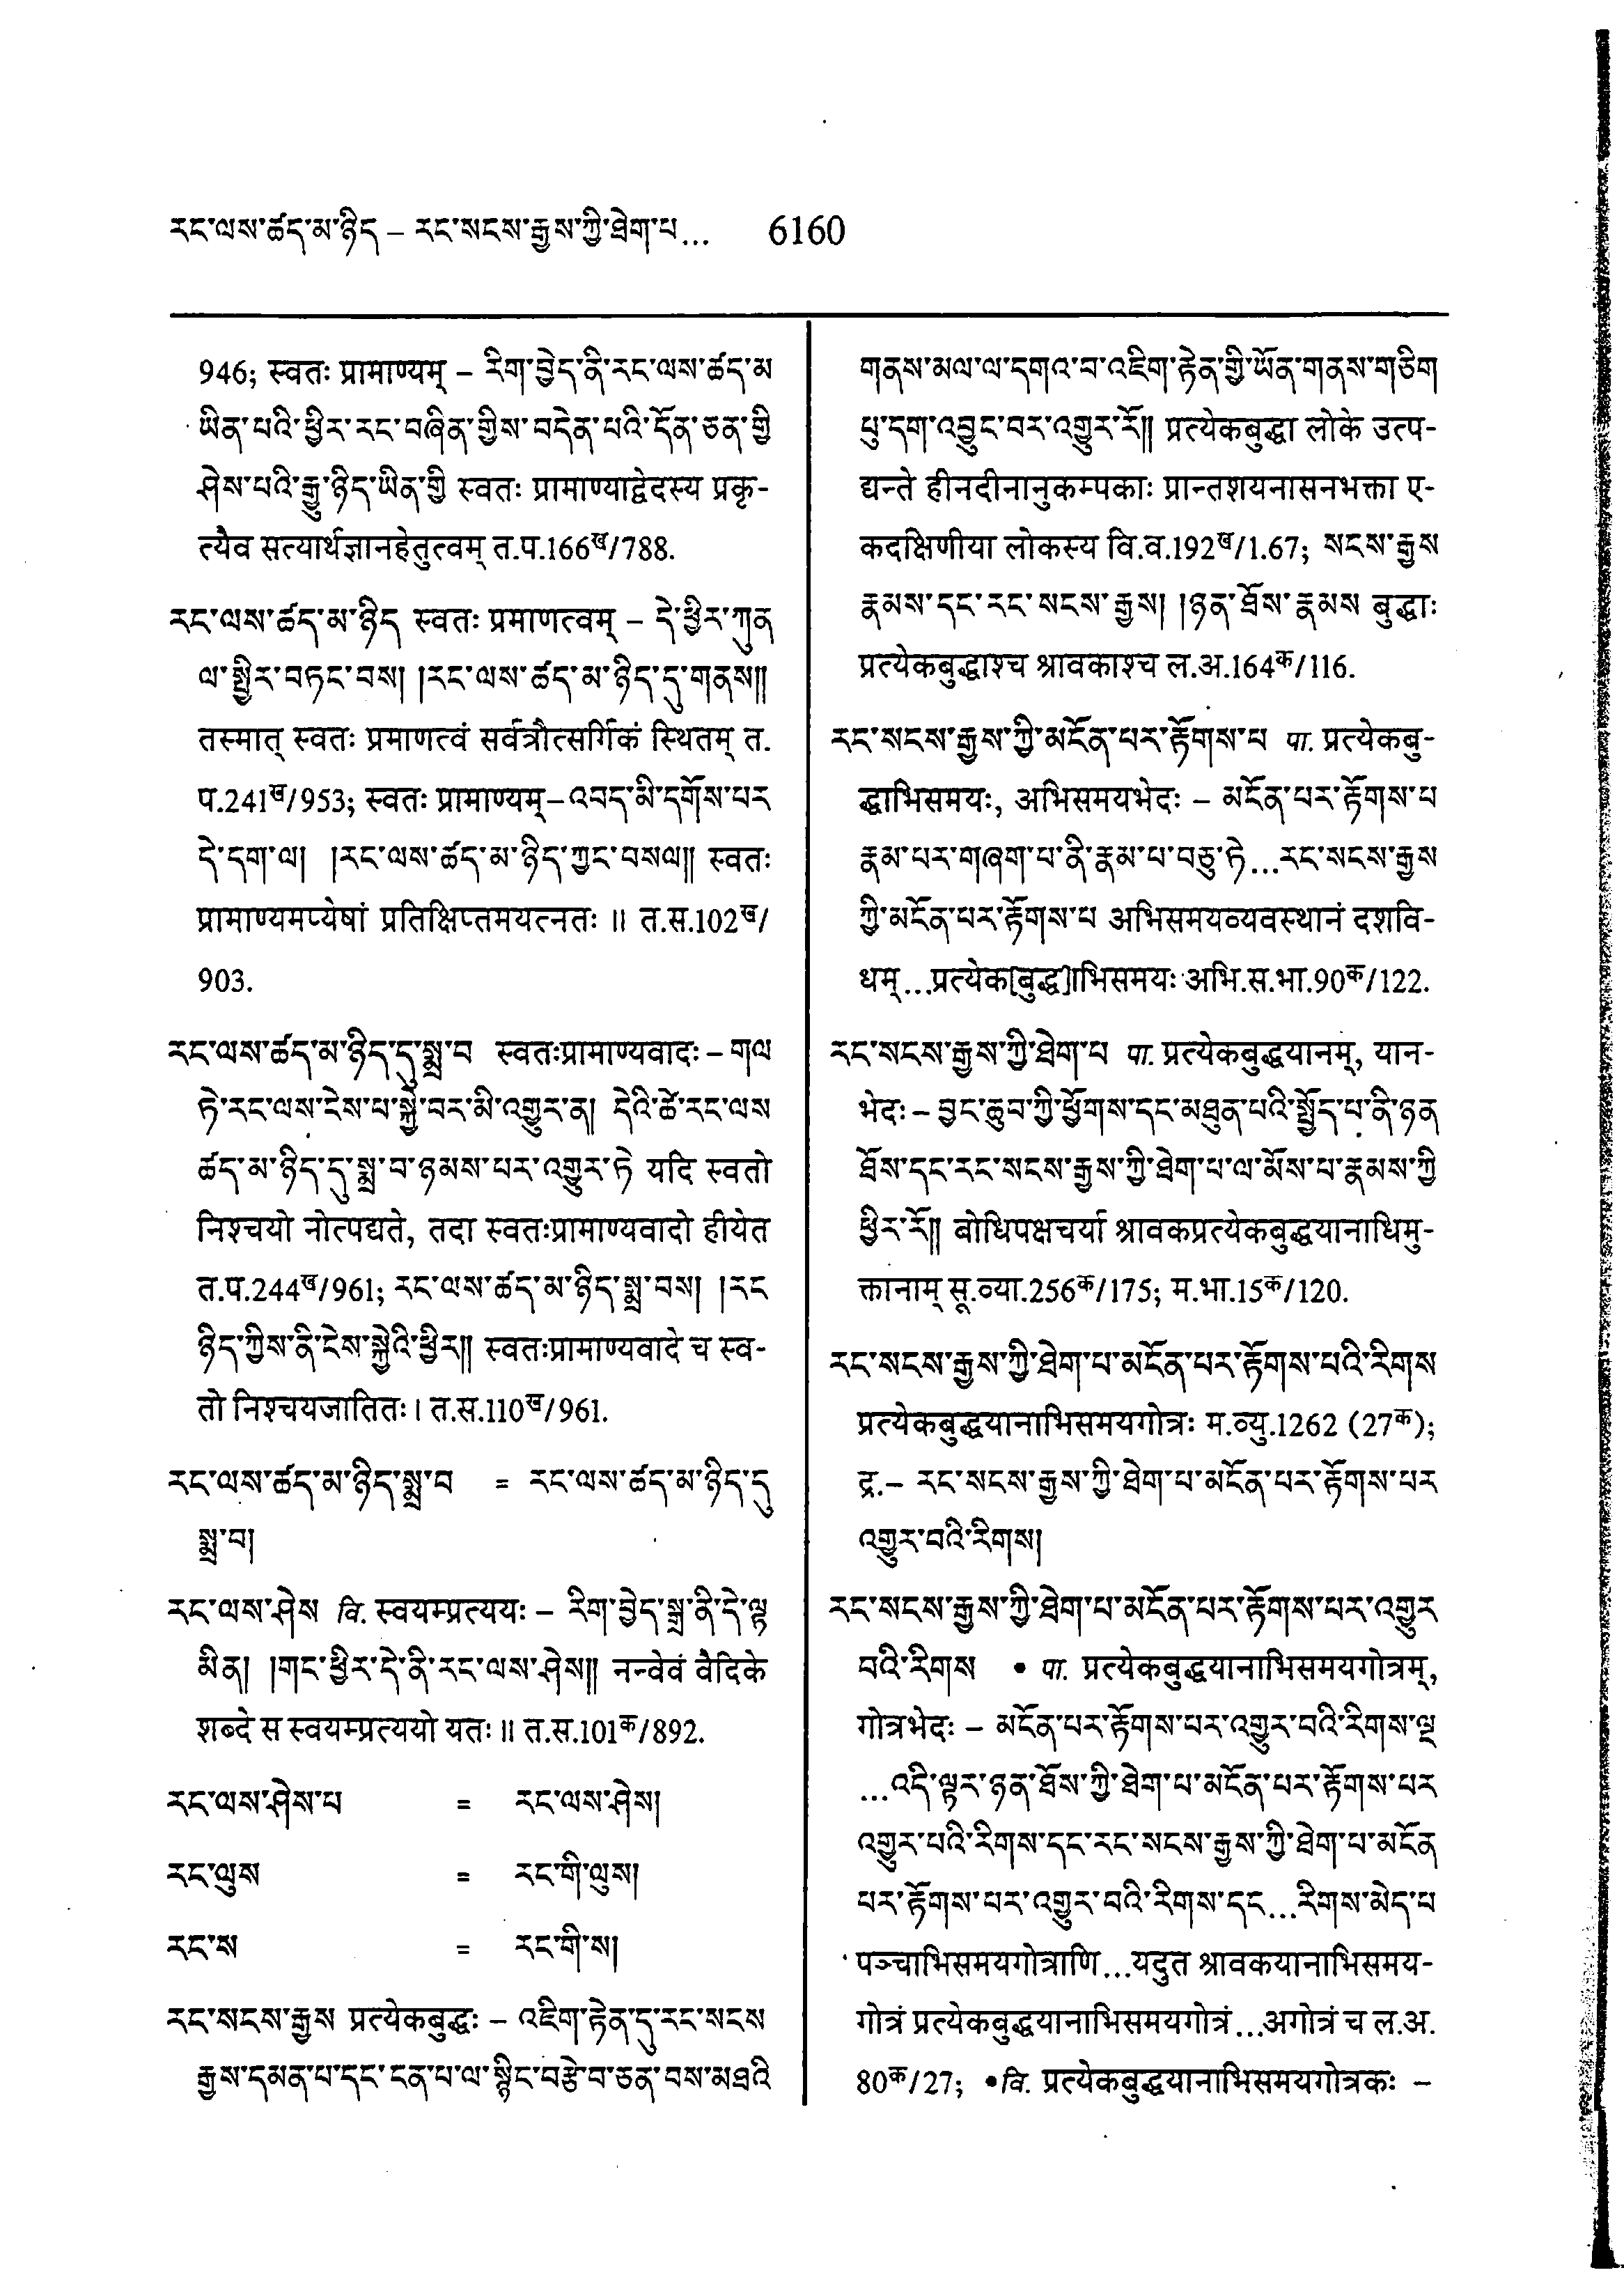 རང་ལས་ཚད་མ་ཉིད – རང་སངས་རྒྱས་ཀྱི་ཐེག་པ... 6160
946; स्वतः प्रामाण्यम् – རིག་བྱེད་ནི་རང་ལས་ཚད་མ
ཡིན་པའི་ཕྱིར་རང་བཞིན་གྱིས་བདེན་པའི་དོན་ཅན་གྱི
ཤེས་པའི་རྒྱུ་ཉིད་ཡིན་གྱི स्वतः प्रामाण्याद्वेदस्य प्रकृ-
त्यैव सत्यार्थज्ञानहेतुत्वम् त.प.166ख/788.
རང་ལས་ཚད་མ་ཉིད स्वतः प्रमाणत्वम् – དེ་ཕྱིར་ཀུན
ལ་སྤྱིར་བཏང་བས། །རང་ལས་ཚད་མ་ཉིད་དུ་གནས༎
तस्मात् स्वतः प्रमाणत्वं सर्वत्रौत्सर्गिकं स्थितम् त.
प.241ख/953; स्वतः प्रामाण्यम् – འབད་མི་དགོས་པར
དེ་དག་ལ། །རང་ལས་ཚད་མ་ཉིད་ཀྱང་བསལ༎ स्वतः
प्रामाण्यमप्येषां प्रतिक्षिप्तमयत्नतः ॥ त.स.102ख/
903.
རང་ལས་ཚད་མ་ཉིད་དུ་སྨྲ་བ स्वतःप्रामाण्यवादः – གལ
ཏེ་རང་ལས་ངེས་པ་སྐྱེ་བར་མི་འགྱུར་ན། དེའི་ཚེ་རང་ལས
ཚད་མ་ཉིད་དུ་སྨྲ་བ་ཉམས་པར་འགྱུར་ཏེ यदि स्वतो
निश्चयो नोत्पद्यते, तदा स्वतःप्रामाण्यवादो हीयेत
त.प.244ख/961; རང་ལས་ཚད་མ་ཉིད་སྨྲ་བས། །རང
ཉིད་ཀྱིས་ནི་ངེས་སྐྱེའི་ཕྱིར༎ स्वतःप्रामाण्यवादे च स्व-
तो निश्चयजातितः । त.स.110ख/961.
རང་ལས་ཚད་མ་ཉིད་སྨྲ་བ = རང་ལས་ཚད་མ་ཉིད་དུ
སྨྲ་བ།
རང་ལས་ཤེས वि. स्वयम्प्रत्ययः – རིག་བྱེད་སྒྲ་ནི་དེ་ལྟ
མིན། །གང་ཕྱིར་དེ་ནི་རང་ལས་ཤེས༎ नन्वेवं वैदिके
शब्दे स स्वयम्प्रत्ययो यतः ॥ त.स.101क/892.
རང་ལས་ཤེས་པ = རང་ལས་ཤེས།
རང་ལུས = རང་གི་ལུས།
རང་ས = རང་གི་ས།
རང་སངས་རྒྱས प्रत्येकबुद्धः – འཇིག་རྟེན་དུ་རང་སངས
རྒྱས་དམན་པ་དང་ངན་པ་ལ་སྙིང་བརྩེ་བ་ཅན་བས་མཐའི
གནས་མལ་ལ་དགའ་བ་འཇིག་རྟེན་གྱི་ཡོན་གནས་གཅིག
པུ་དག་འབྱུང་བར་འགྱུར་རོ༎ प्रत्येकबुद्धा लोके उत्प-
द्यन्ते हीनदीनानुकम्पकाः प्रान्तशयनासनभक्ता ए-
कदक्षिणीया लोकस्य वि.व.192ख/1.67; སངས་རྒྱས
རྣམས་དང་རང་སངས་རྒྱས། །ཉན་ཐོས་རྣམས बुद्धाः
प्रत्येकबुद्धाश्च श्रावकाश्च ल.अ.164क/116.
རང་སངས་རྒྱས་ཀྱི་མངོན་པར་རྟོགས་པ पा. प्रत्येकबु-
द्धाभिसमयः, अभिसमयभेदः – མངོན་པར་རྟོགས་པ
རྣམ་པར་གཞག་པ་ནི་རྣམ་པ་བཅུ་ཏེ...རང་སངས་རྒྱས
ཀྱི་མངོན་པར་རྟོགས་པ अभिसमयव्यवस्थानं दशवि-
धम्...प्रत्येक[बुद्ध]ाभिसमयः अभि.स.भा.90क/122.
རང་སངས་རྒྱས་ཀྱི་ཐེག་པ पा. प्रत्येकबुद्धयानम्, यान-
भेदः – བྱང་ཆུབ་ཀྱི་ཕྱོགས་དང་མཐུན་པའི་སྤྱོད་པ་ནི་ཉན
ཐོས་དང་རང་སངས་རྒྱས་ཀྱི་ཐེག་པ་ལ་མོས་པ་རྣམས་ཀྱི
ཕྱིར་རོ༎ बोधिपक्षचर्या श्रावकप्रत्येकबुद्धयानाधिमु-
क्तानाम् सू.व्या.256क/175; म.भा.15क/120.
རང་སངས་རྒྱས་ཀྱི་ཐེག་པ་མངོན་པར་རྟོགས་པའི་རིགས
प्रत्येकबुद्धयानाभिसमयगोत्रः म.व्यु.1262 (27क);
द्र.– རང་སངས་རྒྱས་ཀྱི་ཐེག་པ་མངོན་པར་རྟོགས་པར
འགྱུར་བའི་རིགས།
རང་སངས་རྒྱས་ཀྱི་ཐེག་པ་མངོན་པར་རྟོགས་པར་འགྱུར
བའི་རིགས • पा. प्रत्येकबुद्धयानाभिसमयगोत्रम्,
गोत्रभेदः – མངོན་པར་རྟོགས་པར་འགྱུར་བའི་རིགས་ལྔ
...འདི་ལྟར་ཉན་ཐོས་ཀྱི་ཐེག་པ་མངོན་པར་རྟོགས་པར
འགྱུར་པའི་རིགས་དང་རང་སངས་རྒྱས་ཀྱི་ཐེག་པ་མངོན
པར་རྟོགས་པར་འགྱུར་བའི་རིགས་དང...རིགས་མེད་པ
पञ्चाभिसमयगोत्राणि...यदुत श्रावकयानाभिसमय-
गोत्रं प्रत्येकबुद्धयानाभिसमयगोत्रं...अगोत्रं च ल.अ.
80क/27; •वि. प्रत्येकबुद्धयानाभिसमयगोत्रकः –